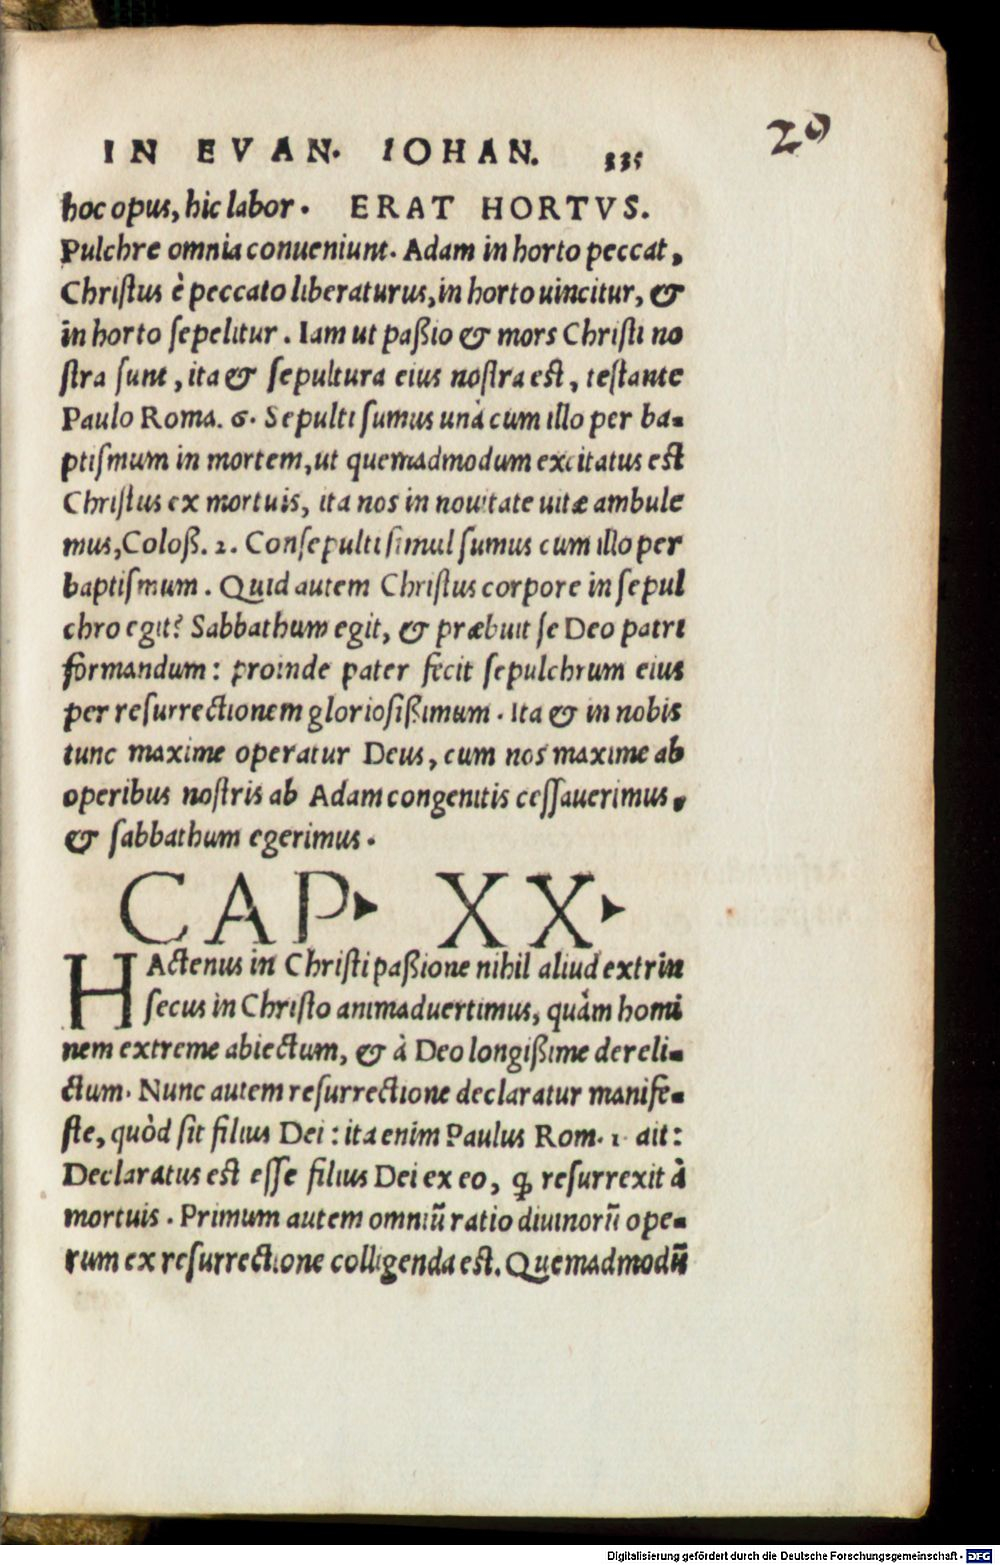 IN EVAN. IOHAN. 335
20
hoc opus, hic labor. ERAT HORTVS.
Pulchre omnia conueniunt. Adam in horto peccat,
Christus è peccato liberaturus, in horto uincitur, &
in horto sepelitur. Iam ut paßio & mors Christi no
stra sunt, ita & sepultura eius nostra est, testante
Paulo Roma. 6. Sepulti sumus unà cum illo per ba-
ptismum in mortem, ut quemadmodum excitatus est
Christus ex mortuis, ita nos in nouitate uitæ ambule
mus, Coloß. 2. Consepulti simul sumus cum illo per
baptismum. Quid autem Christus corpore in sepul
chro egit? Sabbathum egit, & præbuit se Deo patri
formandum: proinde pater fecit sepulchrum eius
per resurrectionem gloriosißimum. Ita & in nobis
tunc maxime operatur Deus, cum nos maxime ab
operibus nostris ab Adam congenitis cessauerimus,
& sabbathum egerimus.
CAP. XX.
HActenus in Christi paßione nihil aliud extrin
secus in Christo animaduertimus, quàm homi
nem extreme abiectum, & à Deo longißime dereli-
ctum. Nunc autem resurrectione declaratur manife-
ste, quòd sit filius Dei: ita enim Paulus Rom. 1. ait:
Declaratus est esse filius Dei ex eo, ꝙ resurrexit à
mortuis. Primum autem omniū ratio diuinorū ope-
rum ex resurrectione colligenda est. Quemadmodū
Digitalisierung gefördert durch die Deutsche Forschungsgemeinschaft - DFG